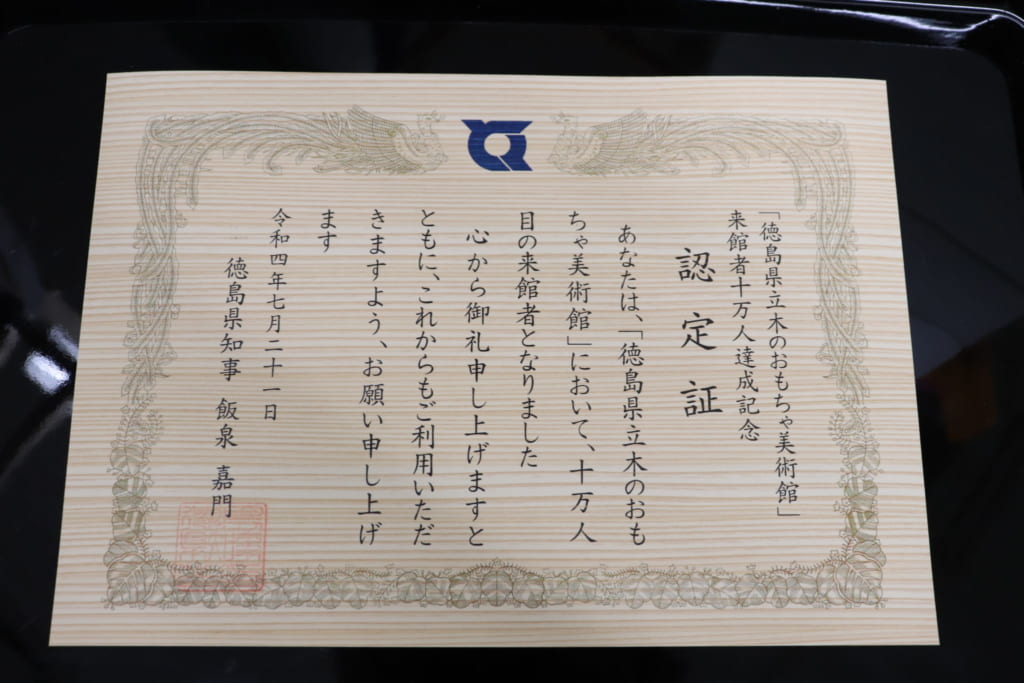 「徳島県立木のおもちゃ美術館」
来館者十万人達成記念
認定証
あなたは、「徳島県立木のおも
ちゃ美術館」において、十万人
目の来館者となりました
心から御礼申し上げますと
ともに、これからもご利用いただ
きますよう、お願い申し上げ
ます
令和四年七月二十一日
徳島県知事 飯泉 嘉門